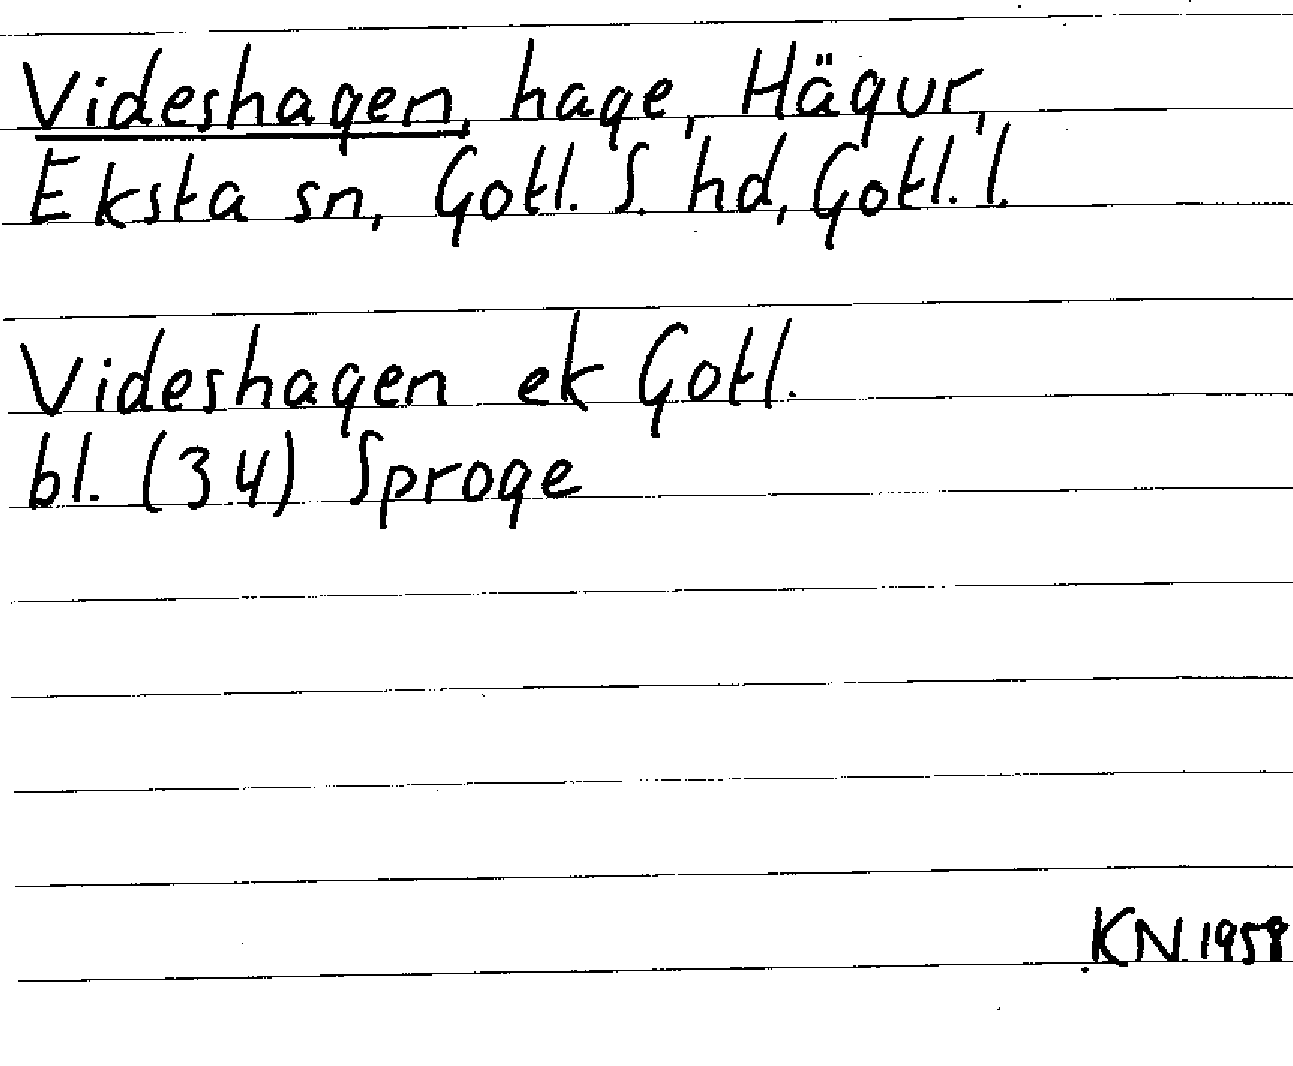 Videshagen, hage, Hägur,
Eksta sn, Gotl. S. hd, Gotl. l.
Videshagen ek Gotl.
bl. (34) Sproge
KN 1958